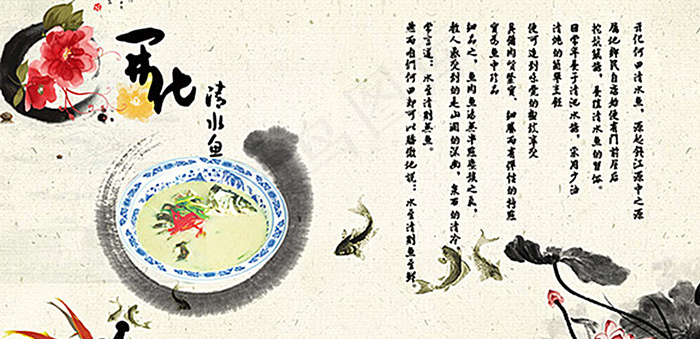 开化
清水鱼
开化何田清水鱼，源起钱江源中之源
属地乡民自古始便有门前屋后
挖坑筑塘、养殖清水鱼的习俗。
日常年养于清泥水塘，家用少油
清炖的简单烹饪
便可达到味觉的极致享受
具备肉质紧实、细腻而有弹性的特点
实为鱼中珍品
细品之，鱼肉鱼汤无半点腥燥之气，
教人感受到的是山涧的深幽，泉石的清冷。
常言道：水至清则无鱼。
然而咱们何田却可以骄傲地说：水至清则鱼至鲜。